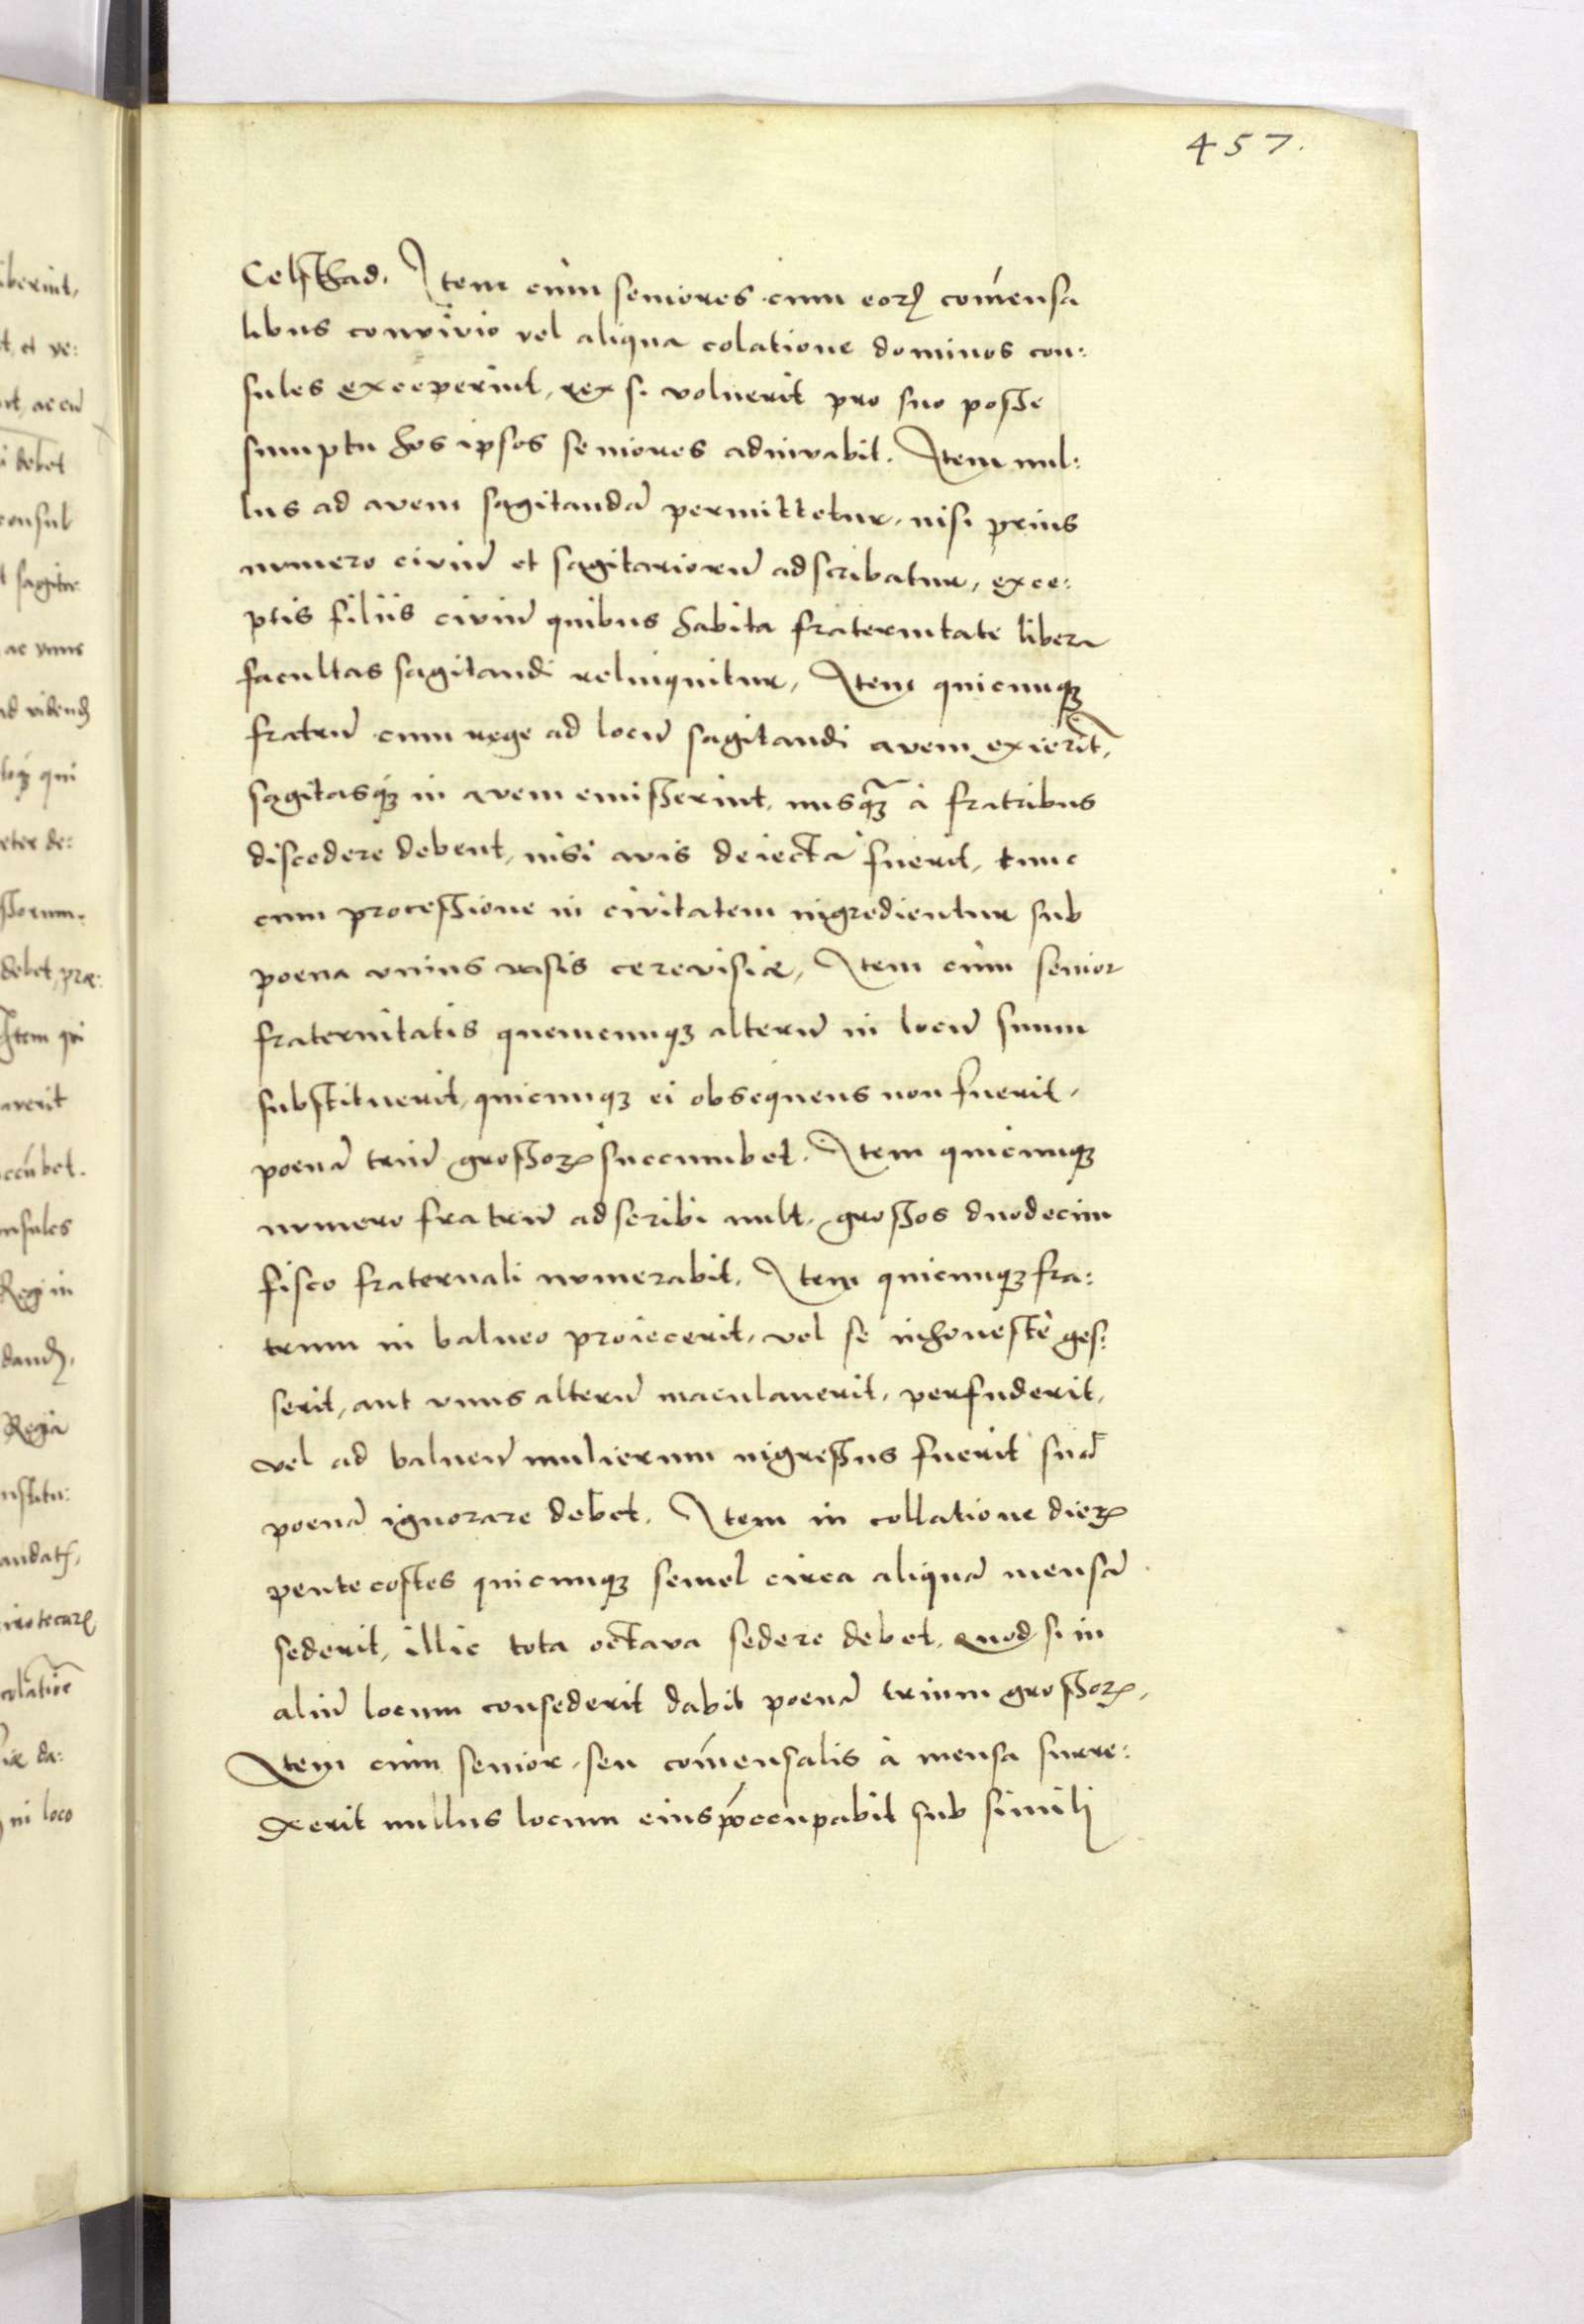 457.
Celsthad. Item cùm seniores cum eoꝝ com̄ensa
libus convivio vel aliqua colatione dominos con:
sules exceperint, rex si voluerit pro suo posse
sumptu hos ipsos seniores adiuvabit. Item nul:
lus ad avem sagitandā permittetur, nisi prius
numero civiū et sagitariorū adscribatur, exce:
ptis filiis civiū quibus habita fraternitate libera
facultas sagitandi relinquitur, Item quicunqꝫ
fratrū cum rege ad locū sagitandi avem exierīt,
sagitasqꝫ in avem emisserint, nusqꝫ̄ à fratribus
discedere debent, nisi avis deiecta fuerit, tunc
cum processione in civitatem ingredientur sub
poena unius vasis cerevisiæ, Item cùm senior
fraternitatis quemcunqꝫ alterū in locū suum
substituerit, quicunqꝫ ei obsequens non fuerit,
poenā triū grossoꝝ succumbet. Item quicunqꝫ
numero fratrū adscribi vult, grossos duodecim
fisco fraternali numerabit. Item quicunqꝫ fra:
trum in balneo proiecerit, vel se inhonestè ges:
serit, aut unus alterū maculaverit, perfuderit,
vel ad balneū mulierum ingressus fuerit suā
poenā ignorare debet. Item in collatione dieꝝ
pentecostes quicunqꝫ semel circa aliquā mensā
sederit, illic tota octava sedere debet, quod si in
aliū locum consederit dabit poenā trium grossoꝝ,
Item cùm senior, seu com̄ensalis à mensa surre:
xerit nullus locum eius p̄occupabit sub simili